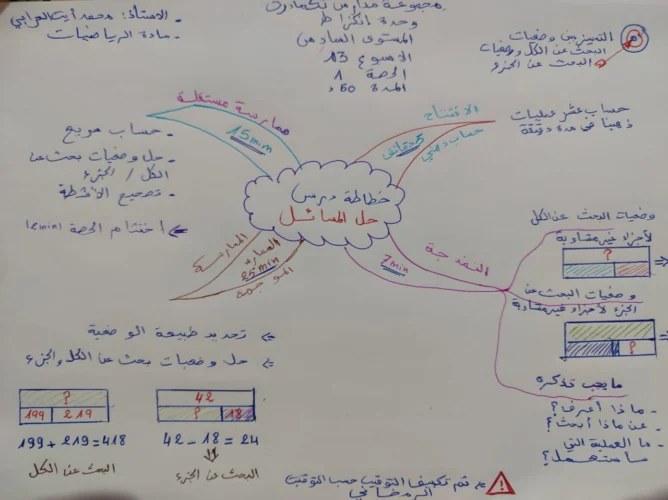 مجموعة مدارس
وحدة إنكرا ط
المستوى السادس
الأسبوع 13
الحصة 1
المدة 50د
- الاستاذ: محمد أيت العرابي
- مادة الرياضيات
التمييز بين وضعيات
البحث عن الكل ووضعيات
البحث عن الجزء
خطاطة درس
حل المسائل
الافتتاح
حساب ذهني
5 دقائق
حساب عشر عمليات
ذهنيا في مدة دقيقة
النمذجة
7min
وضعيات البحث عن الكل
لأجزاء غير متساوية
?
وضعيات البحث عن
الجزء لأجزاء غير متساوية
?
ما يجب تذكره
- ماذا أعرف؟
- عن ماذا أبحث؟
- ما العملية التي
سأستعمل؟
الممارسة
الموجهة
25min
⇐ تحديد طبيعة الوضعية
⇐ حل وضعيات بحث عن الكل والجزء
?
199 219
199 + 219 = 418
البحث عن الكل
42
? 18
42 - 18 = 24
البحث عن الجزء
ممارسة مستقلة
15min
- حساب سريع
- حل وضعيات بحث عن
الكل / الجزء
- تصحيح الأنشطة
⇐ اختتام الحصة (2min)
تم تكييف التوقيت حسب التوقيت
الرمضاني